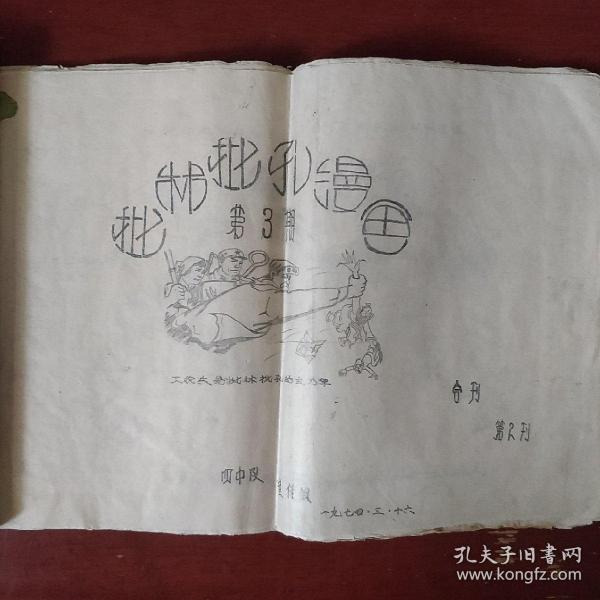 批林批孔漫画
第3期
工农兵是批林批孔的主力军
合刊
第2刊
四中队
一九七四·三·十六
孔夫子旧书网
www.kongfz.com